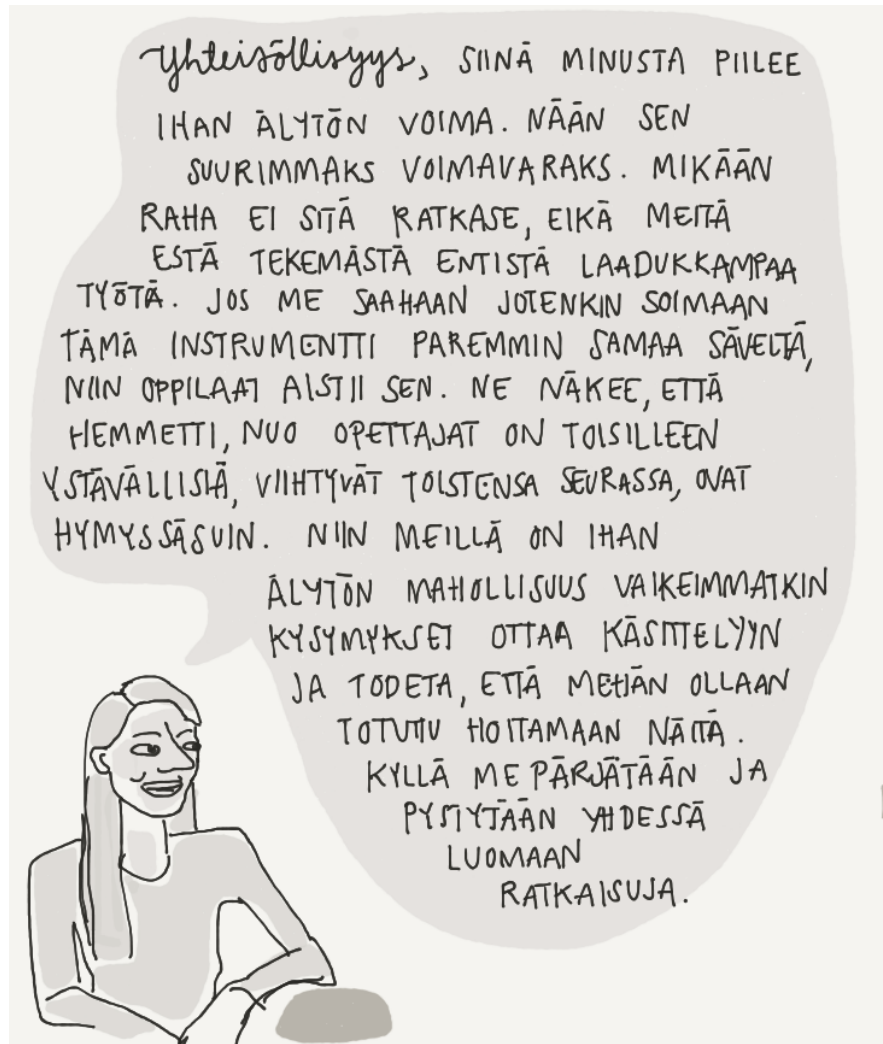 Yhteisöllisyys, SIINÄ MINUSTA PIILEE
IHAN ÄLYTÖN VOIMA. NÄÄN SEN
SUURIMMAKS VOIMAVARAKS. MIKÄÄN
RAHA EI SITÄ RATKASE, EIKÄ MEITÄ
ESTÄ TEKEMÄSTÄ ENTISTÄ LAADUKKAMPAA
TYÖTÄ. JOS ME SAAHAAN JOTENKIN SOIMAAN
TÄMÄ INSTRUMENTTI PAREMMIN SAMAA SÄVELTÄ,
NIIN OPPILAAT AISTII SEN. NE NÄKEE, ETTÄ
HEMMETTI, NUO OPETTAJAT ON TOISILLEEN
YSTÄVÄLLISIÄ, VIIHTYVÄT TOISTENSA SEURASSA, OVAT
HYMYSSÄSUIN. NIIN MEILLÄ ON IHAN
ÄLYTÖN MAHOLLISUUS VAIKEIMMATKIN
KYSYMYKSET OTTAA KÄSITTELYYN
JA TODETA, ETTÄ MEHÄN OLLAAN
TOTUTTU HOITAMAAN NÄITÄ.
KYLLÄ ME PÄRJÄTÄÄN JA
PYSTYTÄÄN YHDESSÄ
LUOMAAN
RATKAISUJA.